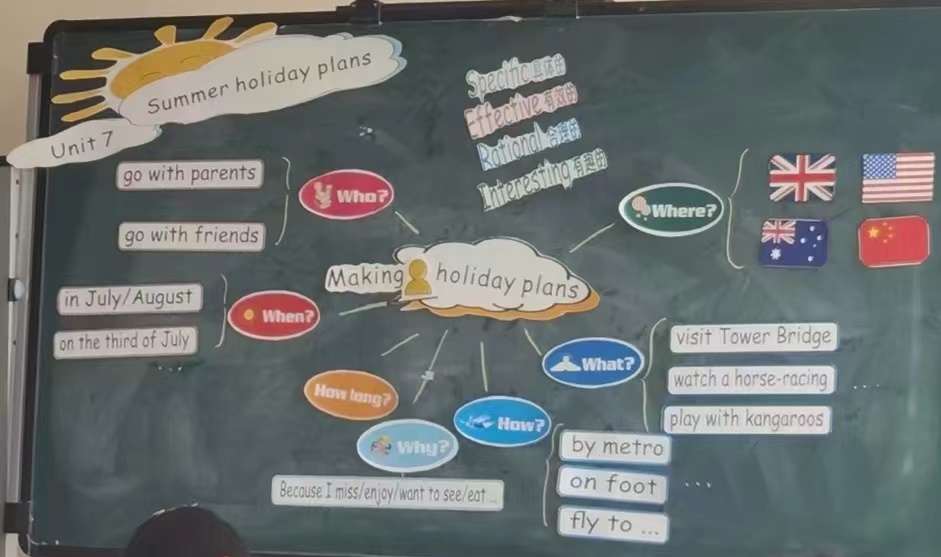 Summer holiday plans
Unit 7
Specific 具体的
Effective 有效的
Rational 合理的
Interesting 有趣的
go with parents
go with friends
Who?
Where?
Making holiday plans
in July/August
on the third of July
When?
What?
visit Tower Bridge
watch a horse-racing ...
play with kangaroos
How long?
Why?
Because I miss/enjoy/want to see/eat ...
How?
by metro
on foot ...
fly to ...